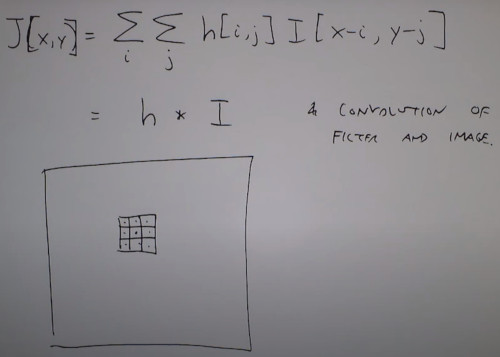 J[x,y] = ∑ ∑ h[i,j] I[x-i, y-j]
i j
= h * I
& CONVOLUTION OF
FILTER AND IMAGE.